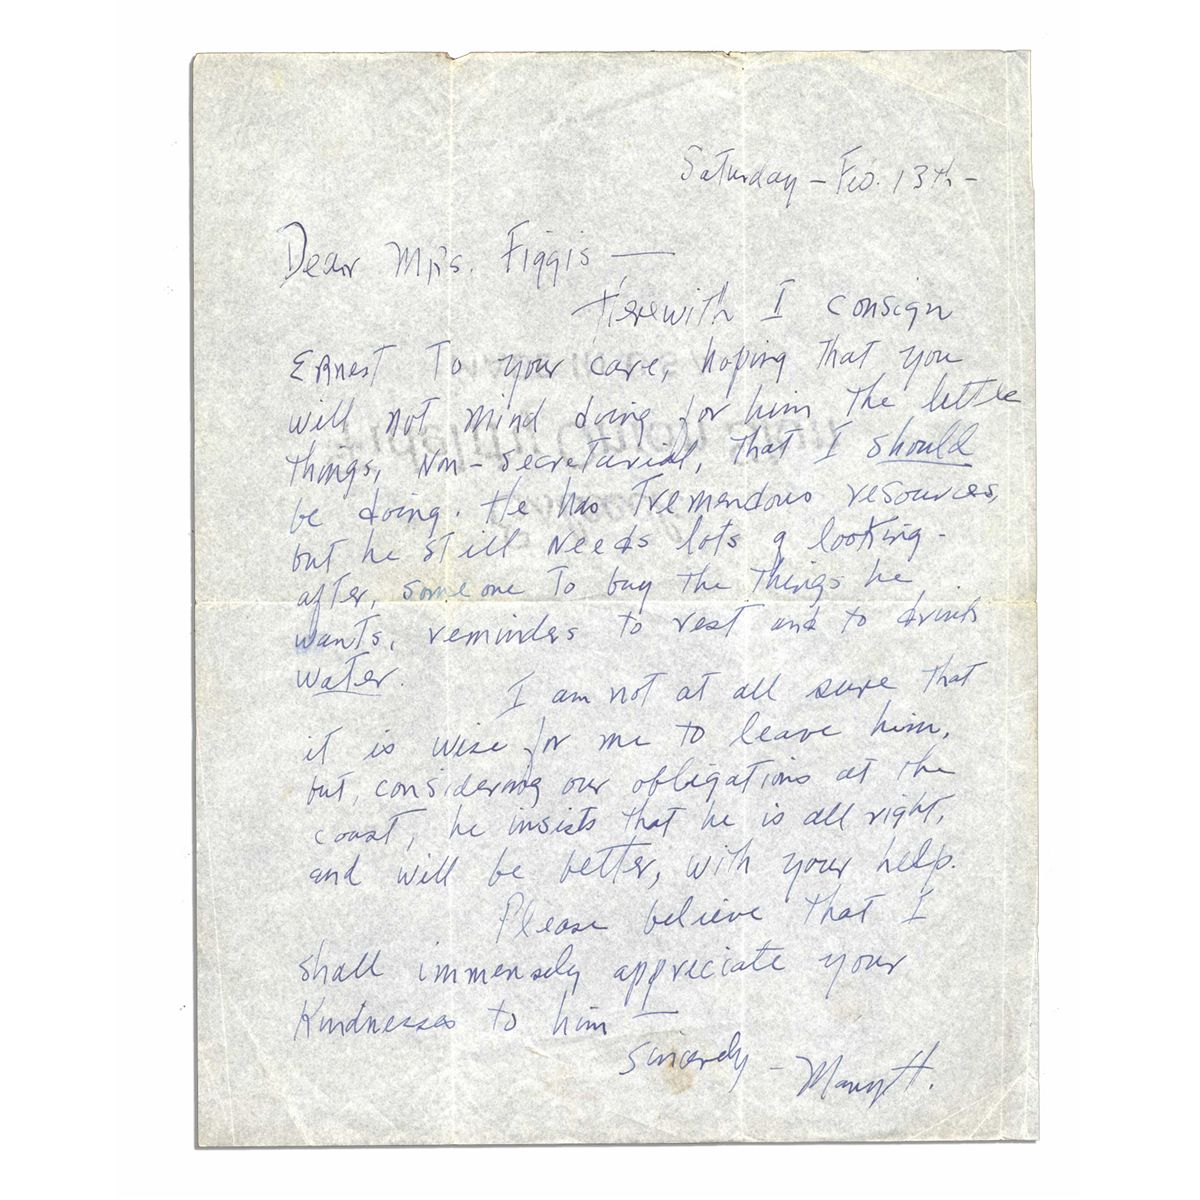 Saturday – Feb. 13th –
Dear Mrs. Figgis —
Herewith I consign
Ernest to your care, hoping that you
will not mind doing for him the little
things, non-secretarial, that I should
be doing. He has tremendous resources,
but he still needs lots of looking-
after, someone to buy the things he
wants, reminders to rest and to drink
water.
I am not at all sure that
it is wise for me to leave him,
but, considering our obligations at the
coast, he insists that he is all right,
and will be better, with your help.
Please believe that I
shall immensely appreciate your
kindnesses to him —
Sincerely – Mary H.